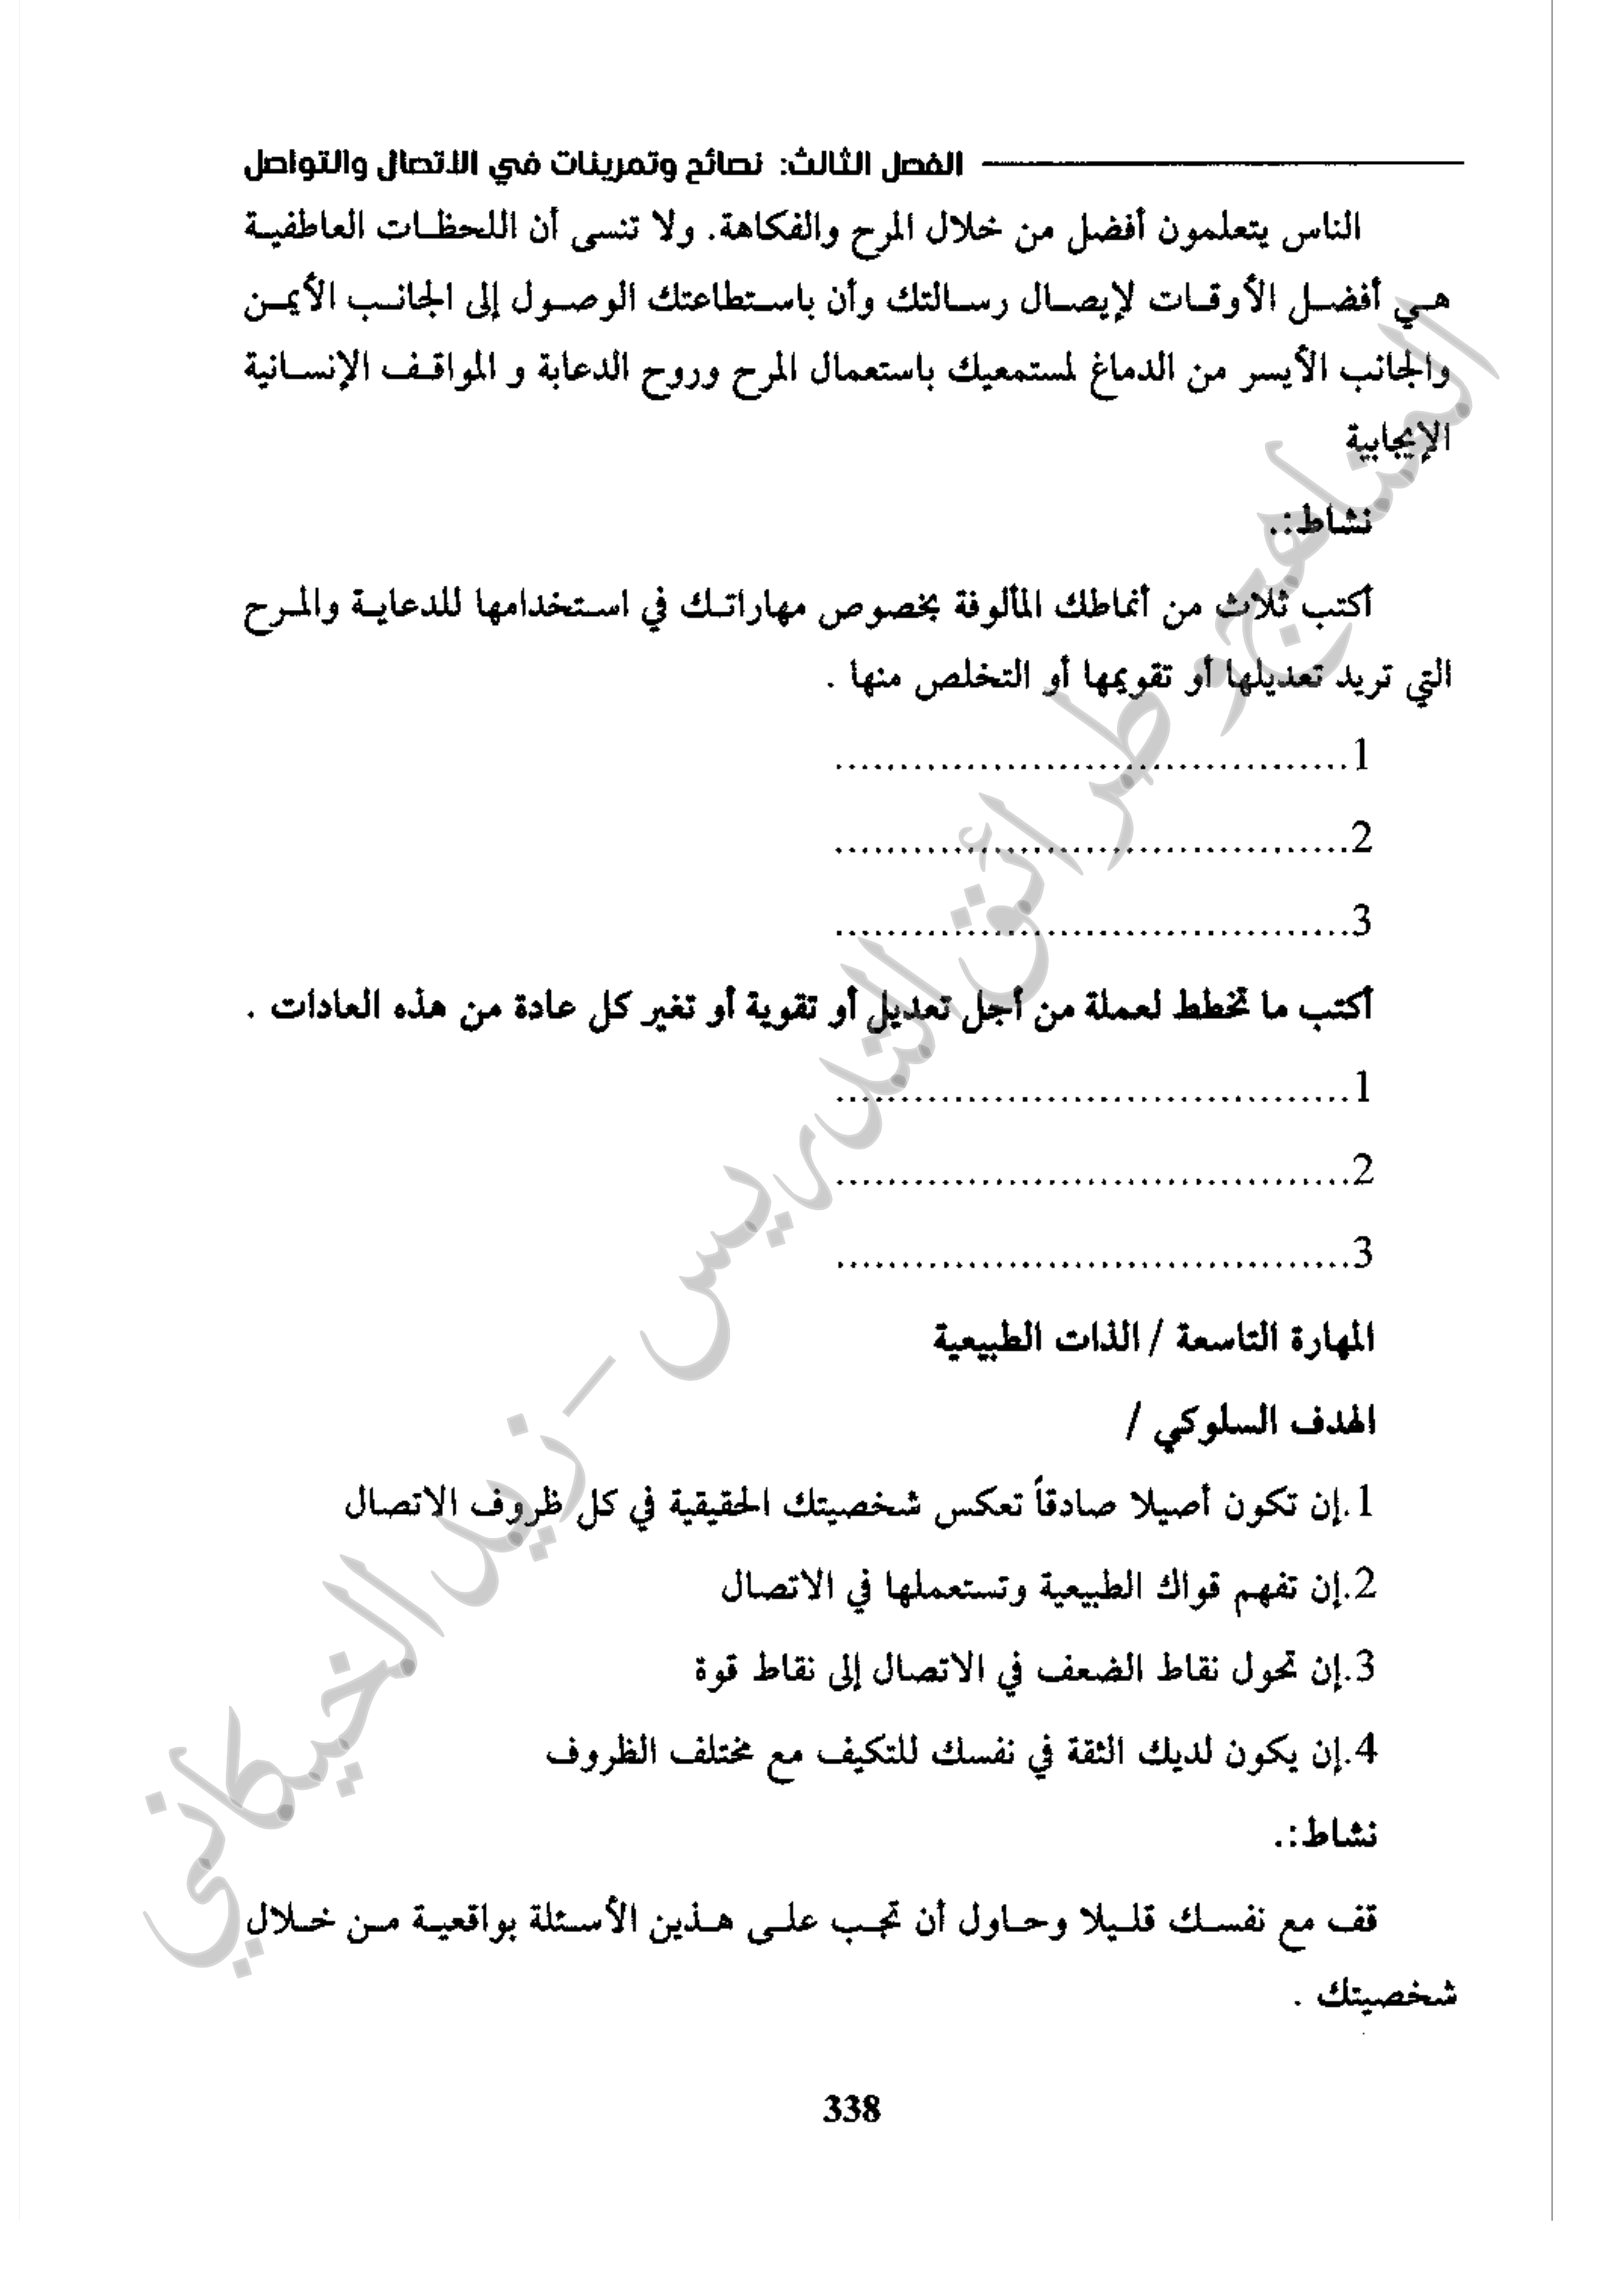 الفصل الثالث: نصائح وتمرينات في الاتصال والتواصل
الناس يتعلمون أفضل من خلال المرح والفكاهة. ولا تنسى أن اللحظات العاطفية
هي أفضل الأوقات لإيصال رسالتك وأن باستطاعتك الوصول إلى الجانب الأيمن
والجانب الأيسر من الدماغ لمستمعيك باستعمال المرح وروح الدعابة و المواقف الإنسانية
الإيجابية
نشاط:.
أكتب ثلاث من أنماطك المألوفة بخصوص مهاراتك في استخدامها للدعاية والمرح
التي تريد تعديلها أو تقويمها أو التخلص منها .
1.......................................
2.......................................
3.......................................
أكتب ما تخطط لعملة من أجل تعديل أو تقوية أو تغير كل عادة من هذه العادات .
1.......................................
2.......................................
3.......................................
المهارة التاسعة / الذات الطبيعية
الهدف السلوكي /
1.إن تكون أصيلا صادقاً تعكس شخصيتك الحقيقية في كل ظروف الاتصال
2.إن تفهم قواك الطبيعية وتستعملها في الاتصال
3.إن تحول نقاط الضعف في الاتصال إلى نقاط قوة
4.إن يكون لديك الثقة في نفسك للتكيف مع مختلف الظروف
نشاط:.
قف مع نفسك قليلا وحاول أن تجب على هذين الأسئلة بواقعية من خلال
شخصيتك .
338
المناهج وطرائق التدريس - زيد الخيكاني